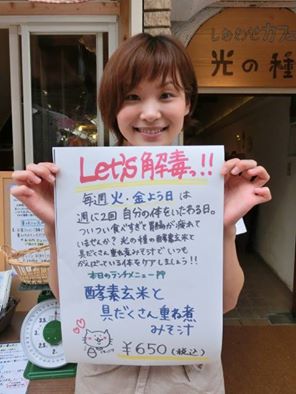 しあわせカフェ
光の種
Let's 解毒っ!!
毎週 火・金よう日 は
週に2回 自分の体をいたわる日。
ついつい食べすぎて胃腸が疲れて
いませんか？ 光の種の酵素玄米と
具だくさん重ね煮みそ汁で いつも
がんばっている体をケアしましょう!!
本日のランチメニュー
酵素玄米と
具だくさん重ね煮
みそ汁
¥650(税込)